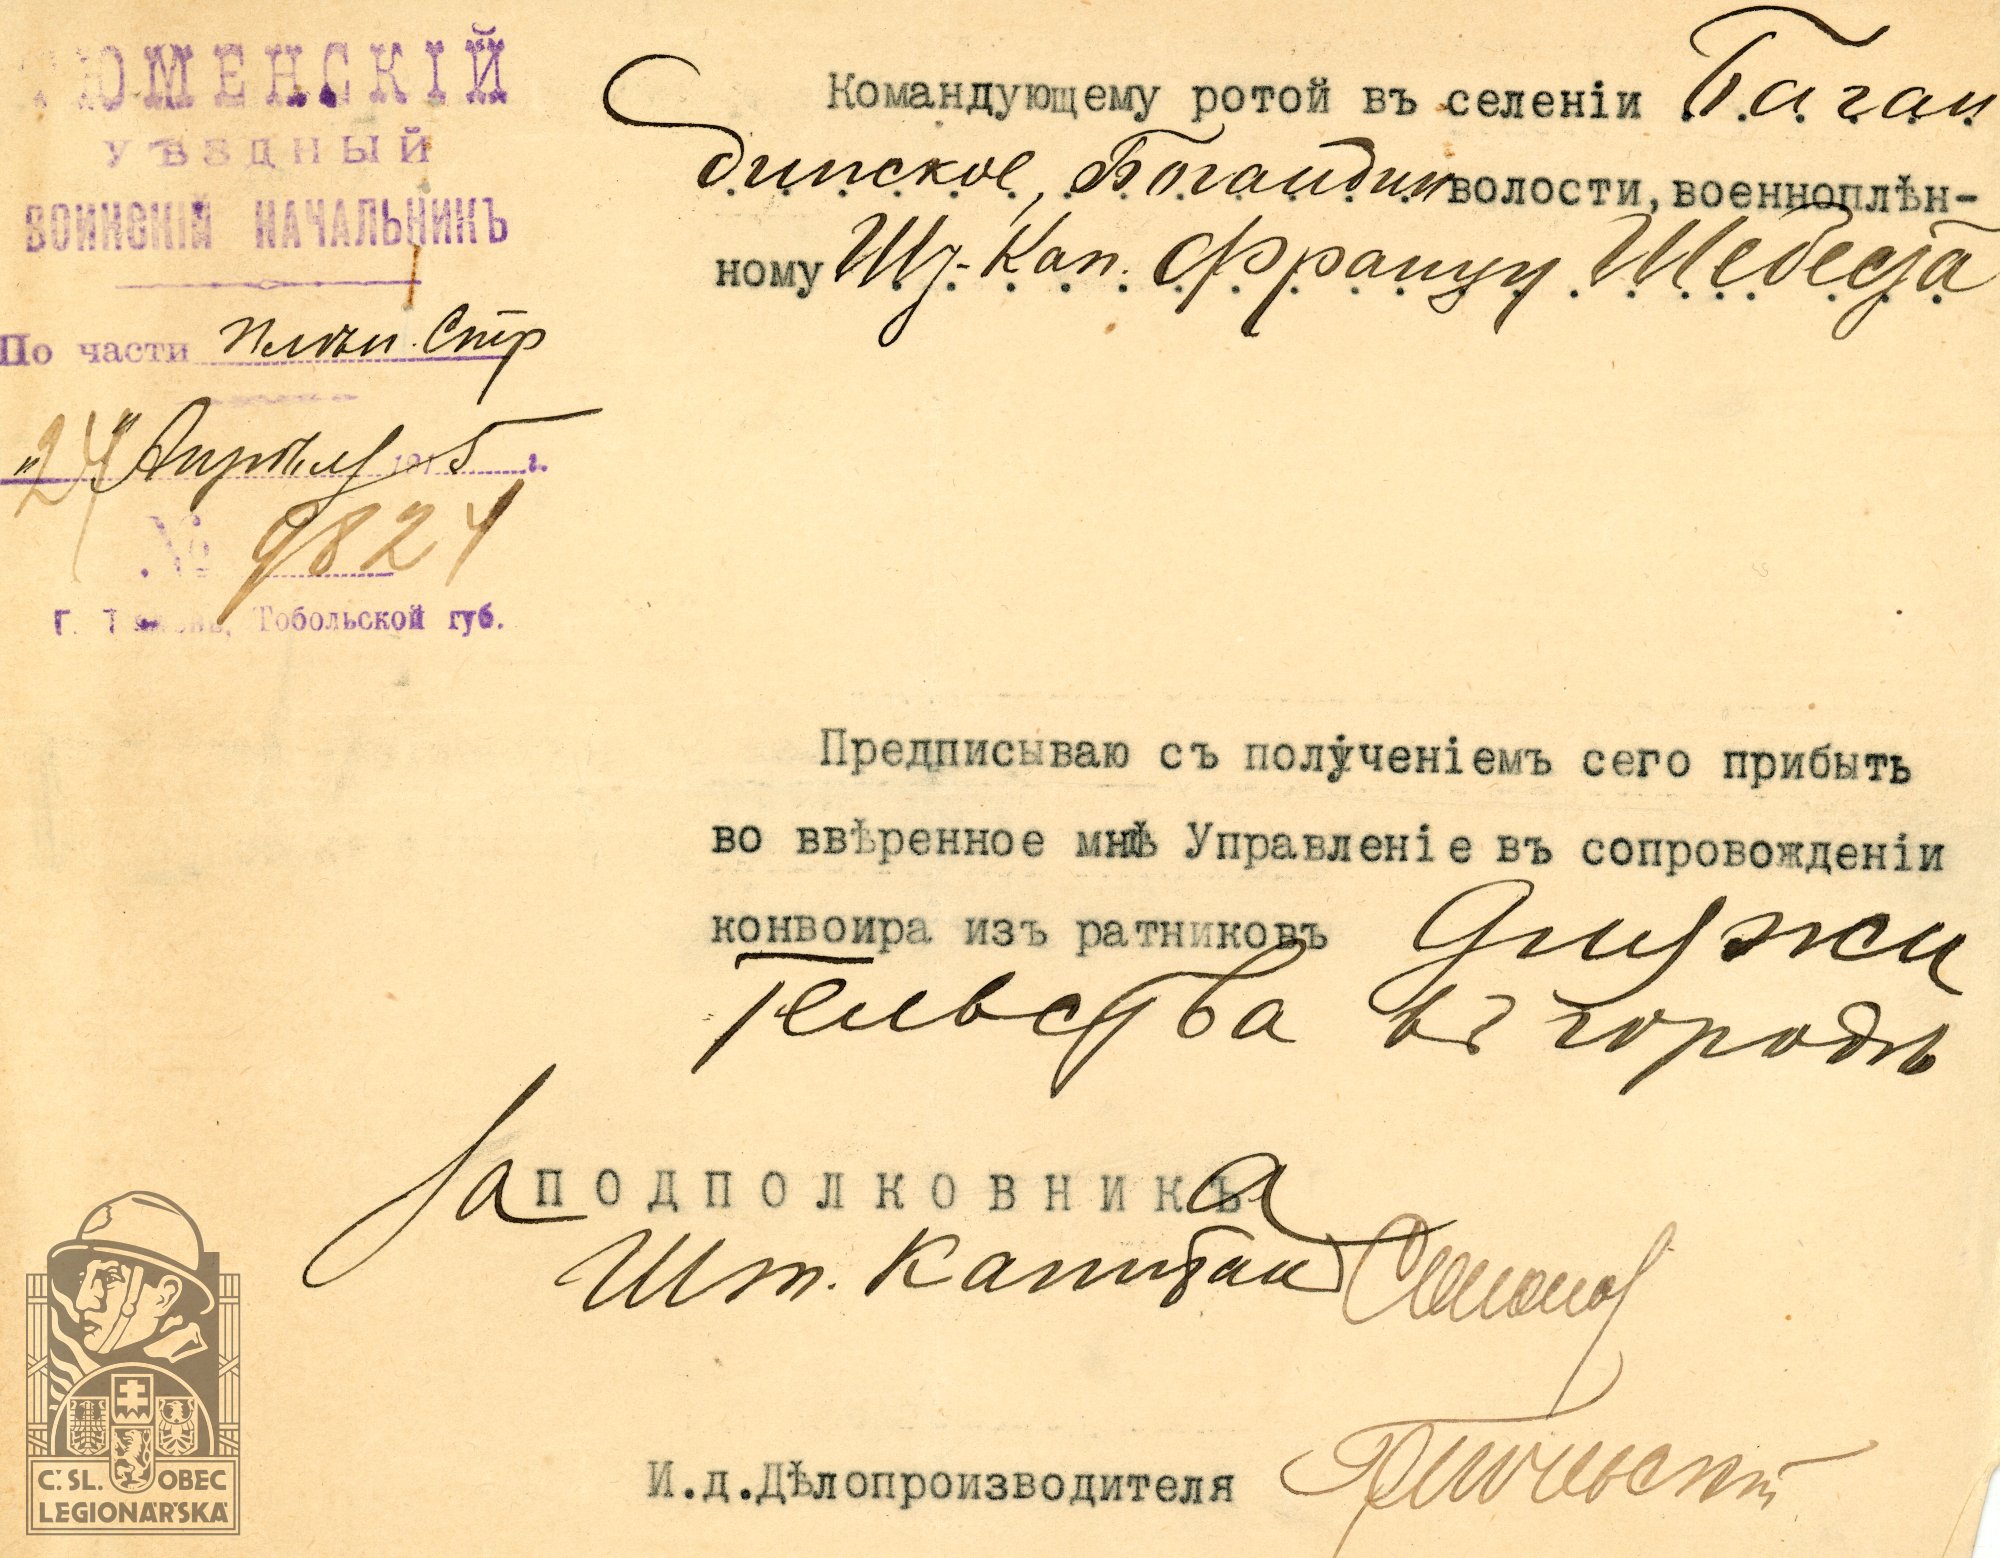 ТЮМЕНСКІЙ
УѢЗДНЫЙ
ВОИНСКІЙ НАЧАЛЬНИКЪ
По части Плѣн. Стр
"24" Апрѣля 1915 г.
№ 9824
Г. Тюмень, Тобольской губ.
Командующему ротой въ селеніи Баган
динское, Богандин волости, военноплѣн-
ному Шт-Кап. Францу Шебеста
Предписываю съ полученіемъ сего прибыть
во ввѣренное мнѣ Управленіе въ сопровожденіи
конвоира изъ ратниковъ для жи
тельства въ городѣ
За подполковника
Шт. Капитан
И.д.Дѣлопроизводителя
Č.SL. OBEC
LEGIONÁŘSKÁ